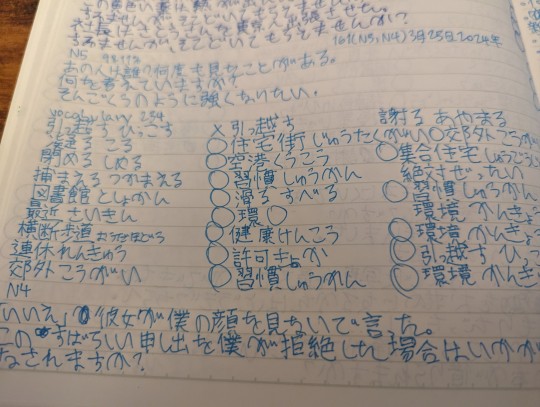 すみませんが、
161(N5,N4) 3月25日2024年
N5
あの人は誰?何度も見たことがある。
何を考えていますか?
そんごくうのように強くなりたい。
Vocabulary 254
引っ越す ひっこす
閉める しめる
捕まえる つかまえる
図書館 としょかん
最近 さいきん
横断歩道 おうだんほどう
連休 れんきゅう
郊外 こうがい
N4
×引っ越す
○住宅街 じゅうたくがい
○空港 くうこう
○習慣 しゅうかん
○滑る すべる
○環○
○健康 けんこう
○許可 きょか
○習慣 しゅうかん
謝る あやまる
○郊外 こうが
○集合住宅 しゅうごうじ
絶対 ぜったい
○習慣 しゅうかん
環境 かんきょ
○環境 かんきょ
○引っ越す ひっ
○環境 かんき
「いいえ」彼女が僕の顔を見ないで言った。
このすばらしい申し出を僕が拒絶した場合はいかが
なされますか?